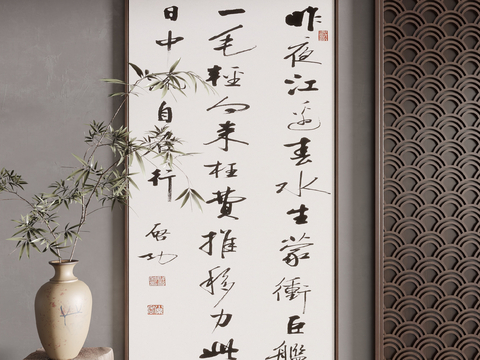 昨夜江邊春水生蒙衝巨艦
一毛輕向来枉費推移力此
日中自在行
啓功